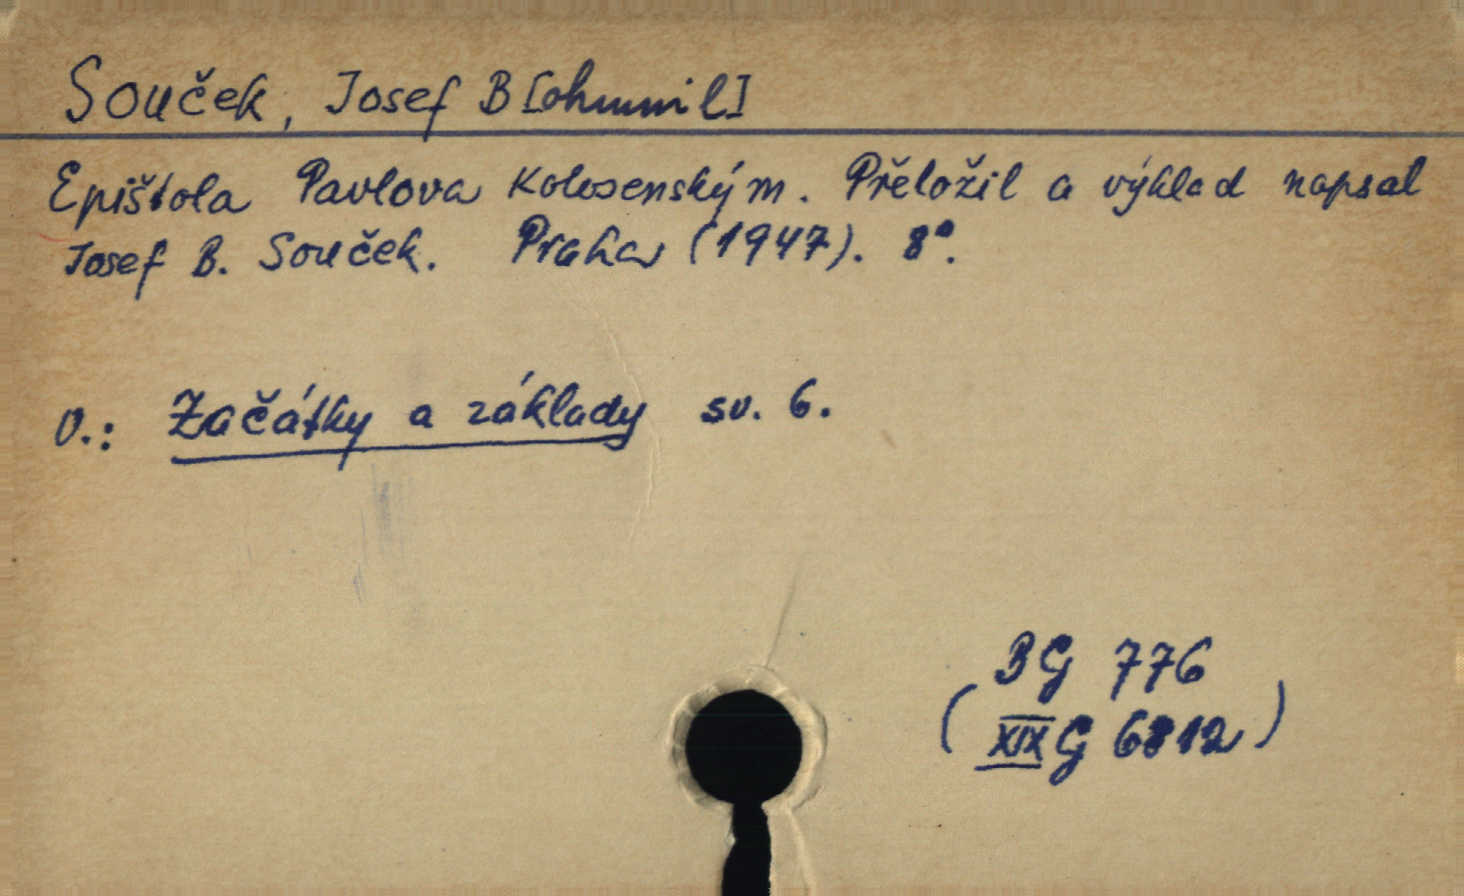 Souček, Josef B[ohumil]
Epištola Pavlova Kolosenským. Přeložil a výklad napsal
Josef B. Souček. Praha (1947). 8°.
v.: Začátky a základy sv. 6.
BG 776
(XIX G 6812)